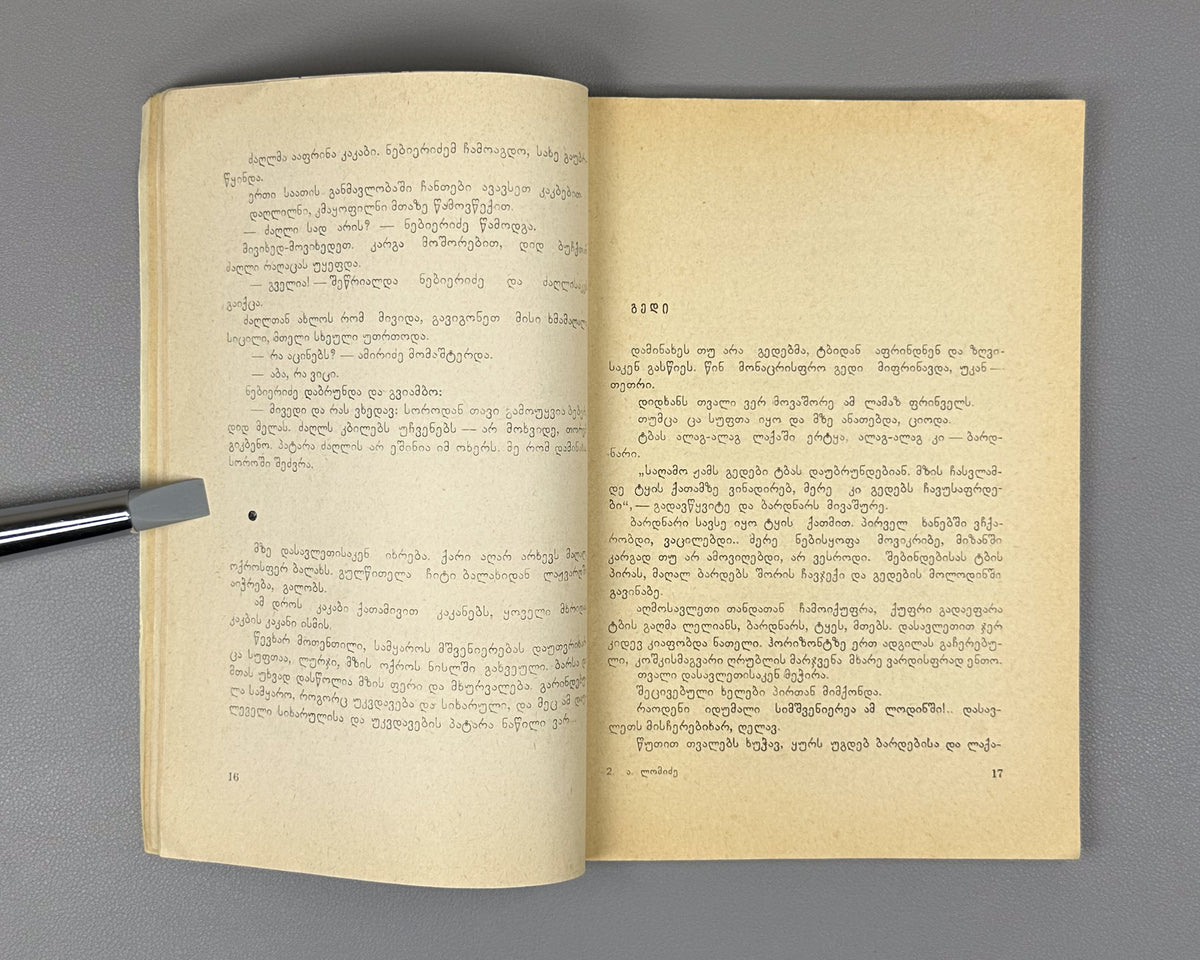 ძაღლმა ააფრინა კაკაბი. ნებიერიძემ ჩამოაგდო, სახე გაუბრ-
წყინდა.
ერთი საათის განმავლობაში ჩანთები ავავსეთ კაკბებით.
დაღლილნი, კმაყოფილნი მთაზე წამოვწექით.
— ძაღლი სად არის? — ნებიერიძე წამოდგა.
მივიხედ-მოვიხედეთ. კარგა მოშორებით, დიდ
ძაღლი რაღაცას უყეფდა.
— გველია! — შეწრიალდა ნებიერიძე და
გაიქცა.
ძაღლთან ახლოს რომ მივიდა, გავიგონეთ მისი
სიცილი, მთელი სხეული უთრთოდა.
— რა აცინებს? — ამირიძე მომაშტერდა.
— აბა, რა ვიცი.
ნებიერიძე დაბრუნდა და გვიამბო:
— მივედი და რას ვხედავ: სოროდან თავი გამოუყვია
დიდ მელას. ძაღლს კბილებს უჩვენებს — არ მოხვიდე,
გიკბენო. პატარა ძაღლის არ ეშინია იმ ოხერს. მე რომ
სოროში შეძვრა.
მზე დასავლეთისაკენ იხრება. ქარი აღარ არხევს
ოქროსფერ ბალახს. გულწითელა ჩიტი ბალახიდან
აიჭრება, გალობს.
ამ დროს კაკაბი ქათამივით კაკანებს, ყოველი
კაკბის კაკანი ისმის.
წევხარ მოთენთილი, სამყაროს მშვენიერებას
ცა სუფთაა, ლურჯი, მზის ოქროს ნისლში გახვეული.
მთას უხვად დასწოლია მზის ფერი და მხურვალება.
ლა სამყარო, როგორც უკვდავება და სიხარული, და მეც ამ
ლეველი სიხარულისა და უკვდავების პატარა ნაწილი ვარ...
16
გედი
დამინახეს თუ არა გედებმა, ტბიდან აფრინდნენ და ზღვი-
საკენ გასწიეს. წინ მონაცრისფრო გედი მიფრინავდა, უკან —
თეთრი.
დიდხანს თვალი ვერ მოვაშორე ამ ლამაზ ფრინველს.
თუმცა ცა სუფთა იყო და მზე ანათებდა, ციოდა.
ტბას ალაგ-ალაგ ლაქაში ერტყა, ალაგ-ალაგ კი — ბარდ-
ნარი.
„საღამო ჟამს გედები ტბას დაუბრუნდებიან. მზის ჩასვლამ-
დე ტყის ქათამზე ვინადირებ, მერე კი გედებს ჩავუსაფრდე-
ბი“, — გადავწყვიტე და ბარდნარს მივაშურე.
ბარდნარი სავსე იყო ტყის ქათმით. პირველ ხანებში ვჩქა-
რობდი, ვაცილებდი.. მერე ნებისყოფა მოვიკრიბე, მიზანში
კარგად თუ არ ამოვიღებდი, არ ვესროდი. შებინდებისას ტბის
პირას, მაღალ ბარდებს შორის ჩავჯექი და გედების მოლოდინში
გავინაბე.
აღმოსავლეთი თანდათან ჩამოიქუფრა, ქუფრი გადაეფარა
ტბის გაღმა ლელიანს, ბარდნარს, ტყეს, მთებს. დასავლეთით ჯერ
კიდევ კიაფობდა ნათელი. ჰორიზონტზე ერთ ადგილას გაჩერებუ-
ლი, კოშკისმაგვარი ღრუბლის მარჯვენა მხარე ვარდისფრად ენთო.
თვალი დასავლეთისაკენ მეჭირა.
შეციებული ხელები პირთან მიმქონდა.
რაოდენი იდუმალი სიმშვენიერეა ამ ლოდინში!.. დასავ-
ლეთს მისჩერებიხარ, ღელავ.
წუთით თვალებს ხუჭავ, ყურს უგდებ ბარდებისა და ლაქა-
2. ა. ლომიძე
17